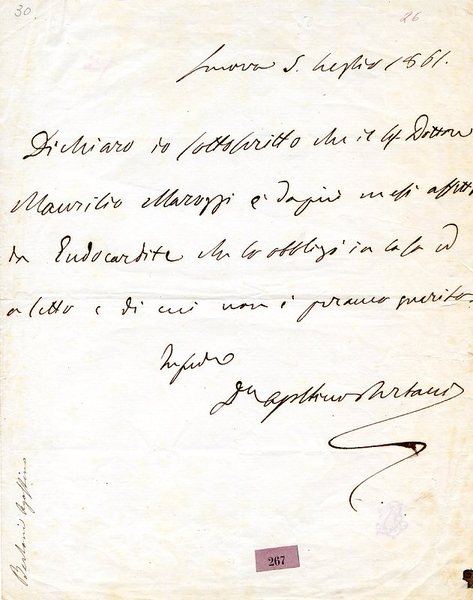 30
26
Genova 5. luglio 1861.
Dichiaro io sottoscritto che il Sig. Dottore
Maurilio Marozzi è da più mesi affetto
da Endocardite che lo obbligò in casa ed
a letto e di cui non è peranco guarito.
In fede
Dr. Agostino Bertani
Bertani Agostino
267